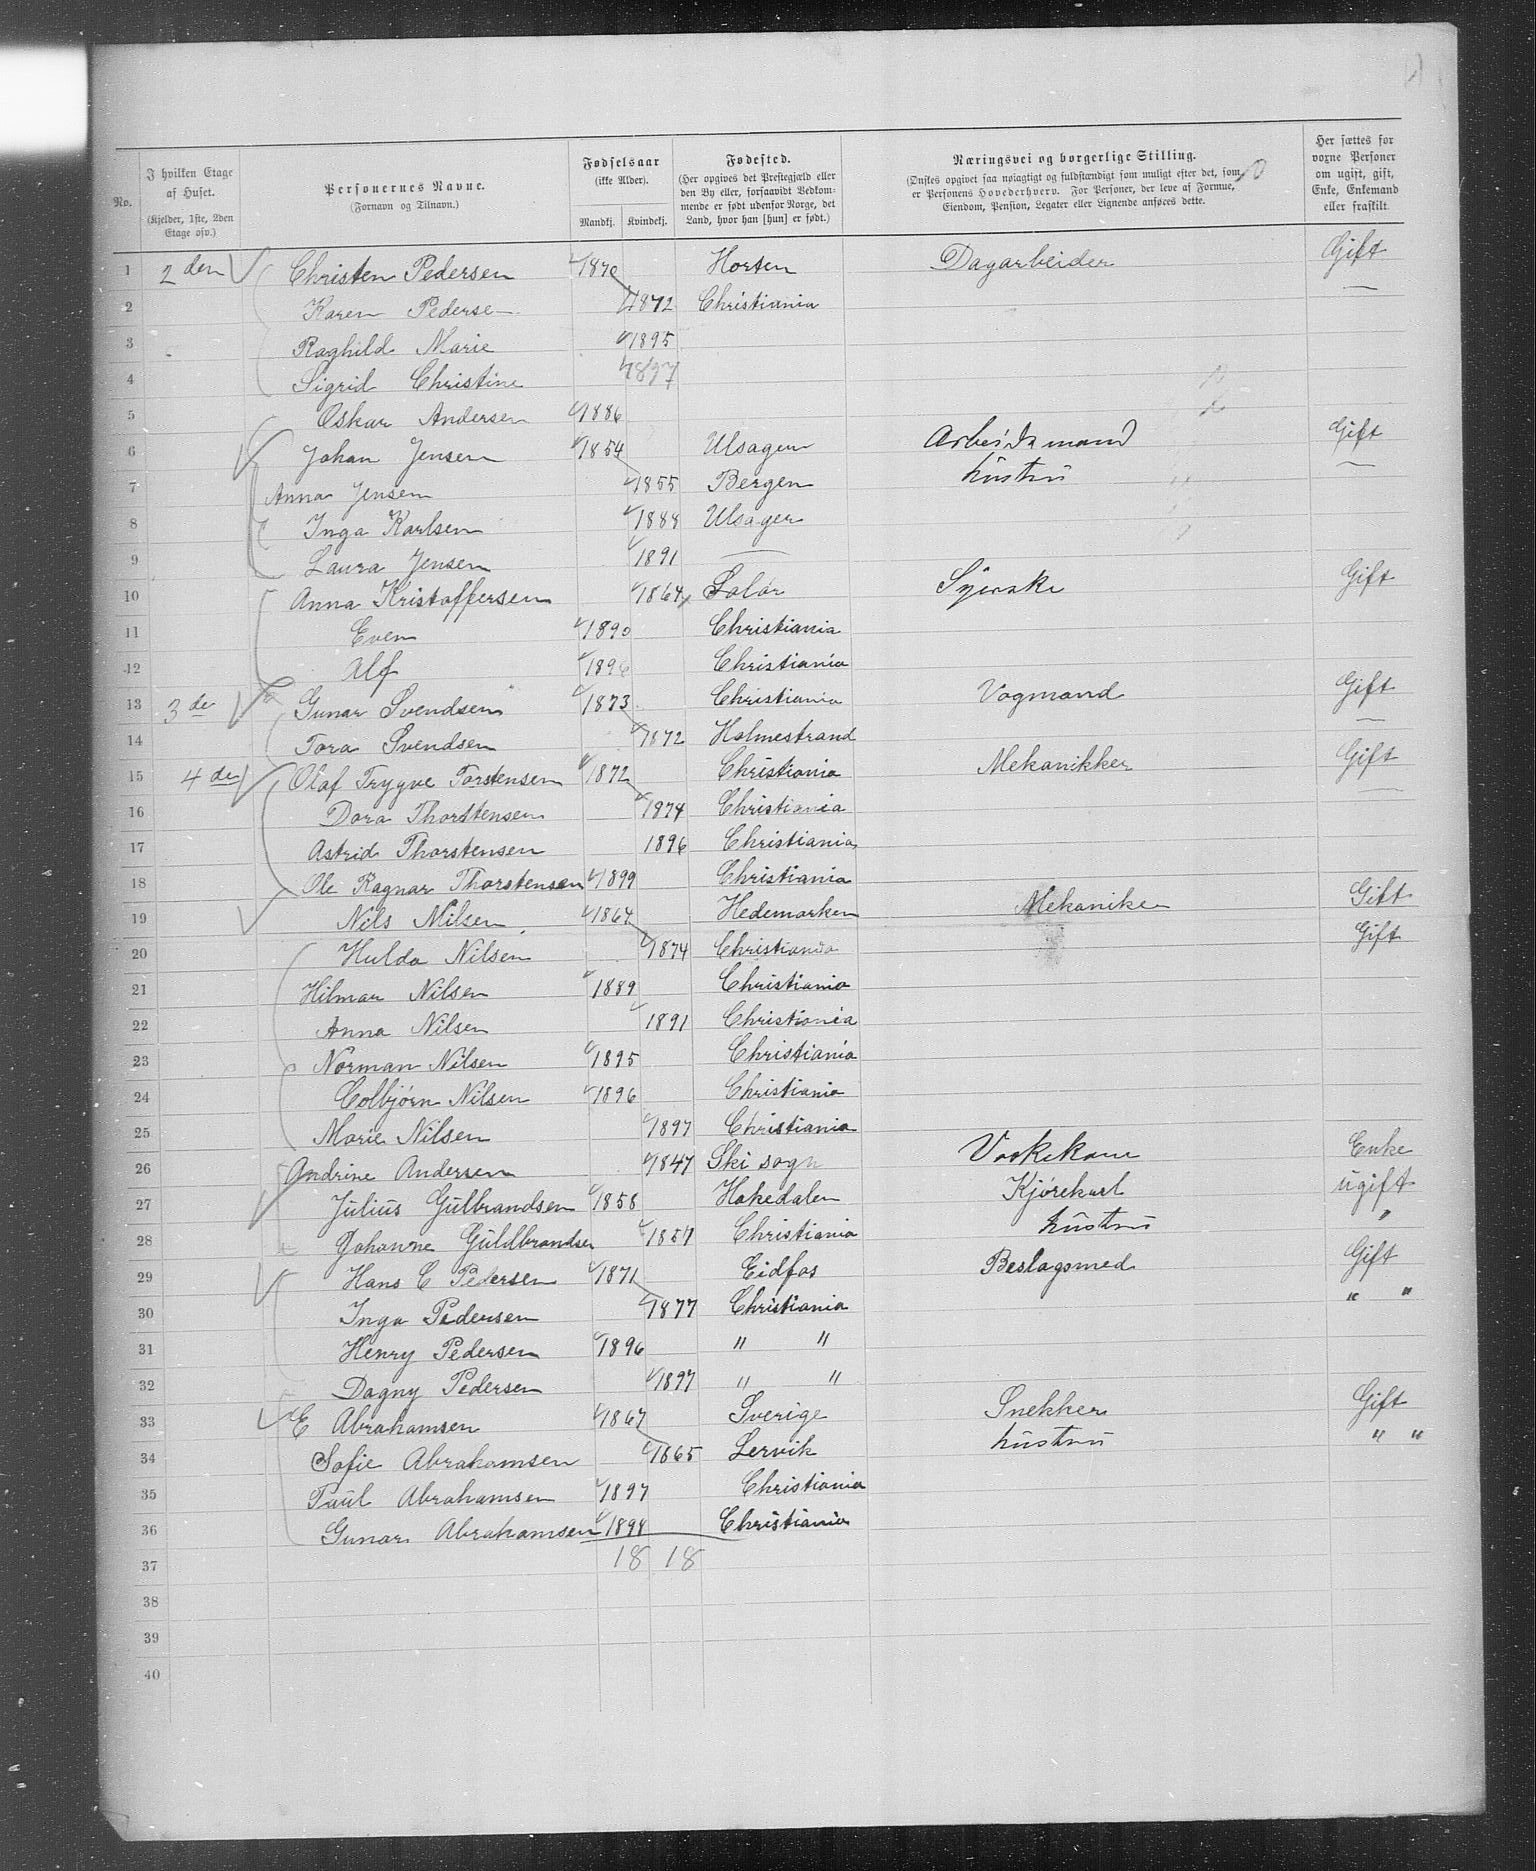 No.
I hvilken Etage af Huset.
(Kjelder, 1ste, 2den Etage osv.)
Personernes Navne.
(Fornavn og Tilnavn.)
Fødselsaar
(ikke Alder).
Mandkj. Kvindekj.
Fødested.
(Her opgives det Prestegjæld eller
den By eller, forsaavidt Vedkom-
mende er født udenfor Norge, det
Land, hvor han [hun] er født.)
Næringsvei og borgerlige Stilling.
(Ønskes opgivet saa nøiagtigt og fuldstændigt som muligt efter det, som
er Personens Hovederhverv. For Personer, der leve af Formue,
Eiendom, Pension, Legater eller Lignende anføres dette.
Her sættes for
voxne Personer
om ugift, gift,
Enke, Enkemand
eller fraskilt.
1 2den Christen Pedersen 1870 Horten Dagarbeider Gift
2 Karen Pederse 1872 Christiania —
3 Raghild Marie 1895
4 Sigrid Christine 1897
5 Oskar Andersen 1886
6 Johan Jensen 1854 Ulsagen Arbeidsmand Gift
7 Anna Jensen 1855 Bergen hustru —
8 Inga Karlsen 1888 Ulsager
9 Laura Jensen 1891 —
10 Anna Kristoffersen 1864 Solør Syerske Gift
11 Even 1890 Christiania
12 Alf 1896 Christiania
13 3de Gunar Svendsen 1873 Christiania Vogmand Gift
14 Tora Svendsen 1872 Holmestrand —
15 4de Olaf Trygve Torstensen 1872 Christiania Mekanikker Gift
16 Dora Thorstensen 1874 Christiania —
17 Astrid Thorstensen 1896 Christiania
18 Ole Ragnar Thorstensen 1899 Christiania
19 Nils Nilsen 1864 Hedemarken Mekaniker Gift
20 Hulda Nilsen 1874 Christiania Gift
21 Hilmar Nilsen 1889 Christiania
22 Anna Nilsen 1891 Christiania
23 Norman Nilsen 1895 Christiania
24 Colbjørn Nilsen 1896 Christiania
25 Marie Nilsen 1897 Christiania
26 Andrine Andersen 1847 Ski sogn Vaskekone Enke
27 Julius Gulbrandsen 1858 Hakedalen Kjørekarl ugift
28 Johanne Guldbrandsen 1857 Christiania hustru "
29 Hans C Pedersen 1871 Eidfos Beslagsmed Gift
30 Inga Pedersen 1877 Christiania " "
31 Henry Pedersen 1896 " "
32 Dagny Pedersen 1897 " "
33 E Abrahamsen 1867 Sverige Snekker Gift
34 Sofie Abrahamsen 1865 Lervik hustru " "
35 Paul Abrahamsen 1897 Christiania
36 Gunar Abrahamsen 1898 Christiania
37 18 18
38
39
40